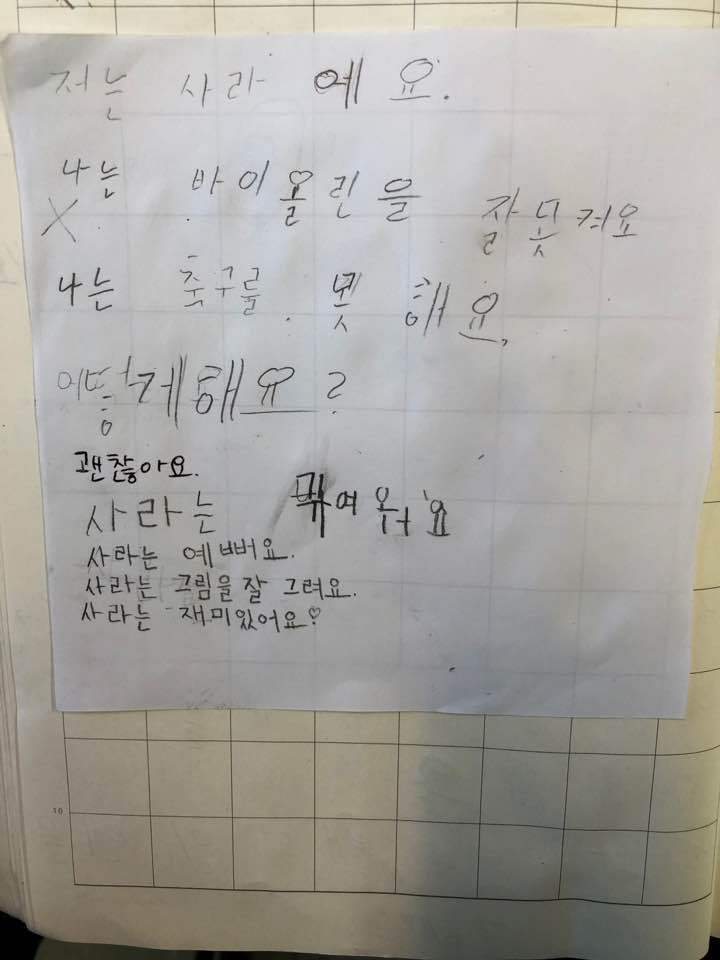 저는 사라 예요.
나는 바이올린을 잘 못켜요
X
나는 축구를 못 해요.
어떻게해요?
괜찮아요.
사라는 귀여워요
사라는 예뻐요.
사라는 그림을 잘 그려요.
사라는 재미있어요♡
10